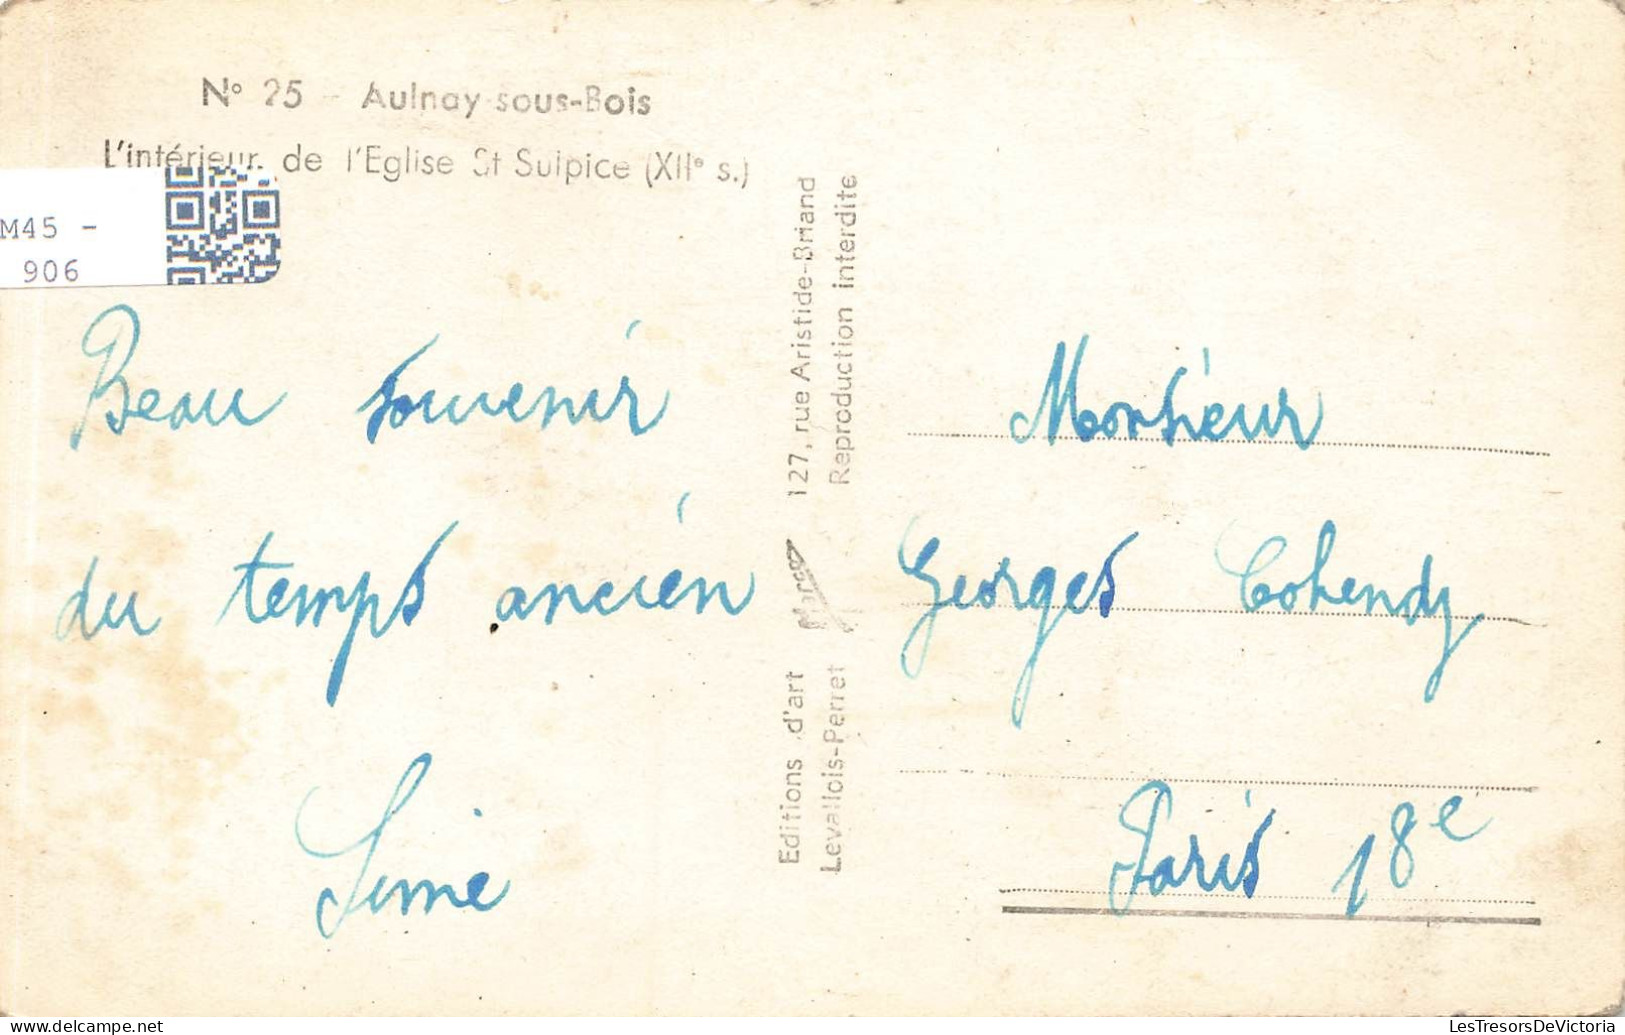 N° 25 - Aulnay-sous-Bois
L'intérieur de l'Eglise St Sulpice (XII° s.)
M45 -
906
Beau souvenir
du temps ancien
Editions d'art Marco 127, rue Aristide-Briand
Levallois-Perret Reproduction interdite
Monsieur
Georges Cohendy
Paris 18e
LesTresorsDeVictoria
www.delcampe.net